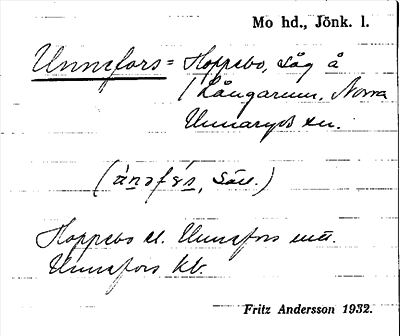 Mo hd., Jönk. l.
Unnefors = Hoppebo, såg å
Långarum, Norra
Unnaryds sn.
Hoppebo el. Unnefors
Unnefors kb.
Fritz Andersson 1932.